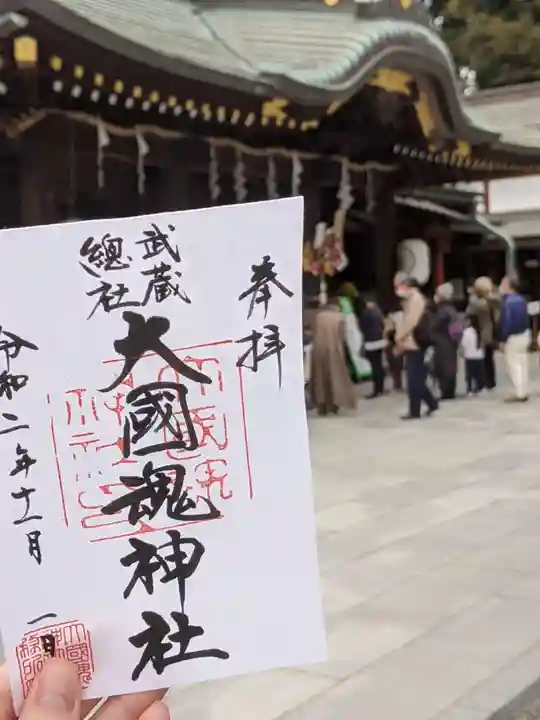 奉拝
武蔵
總社
大國魂神社
令和二年十一月
一日